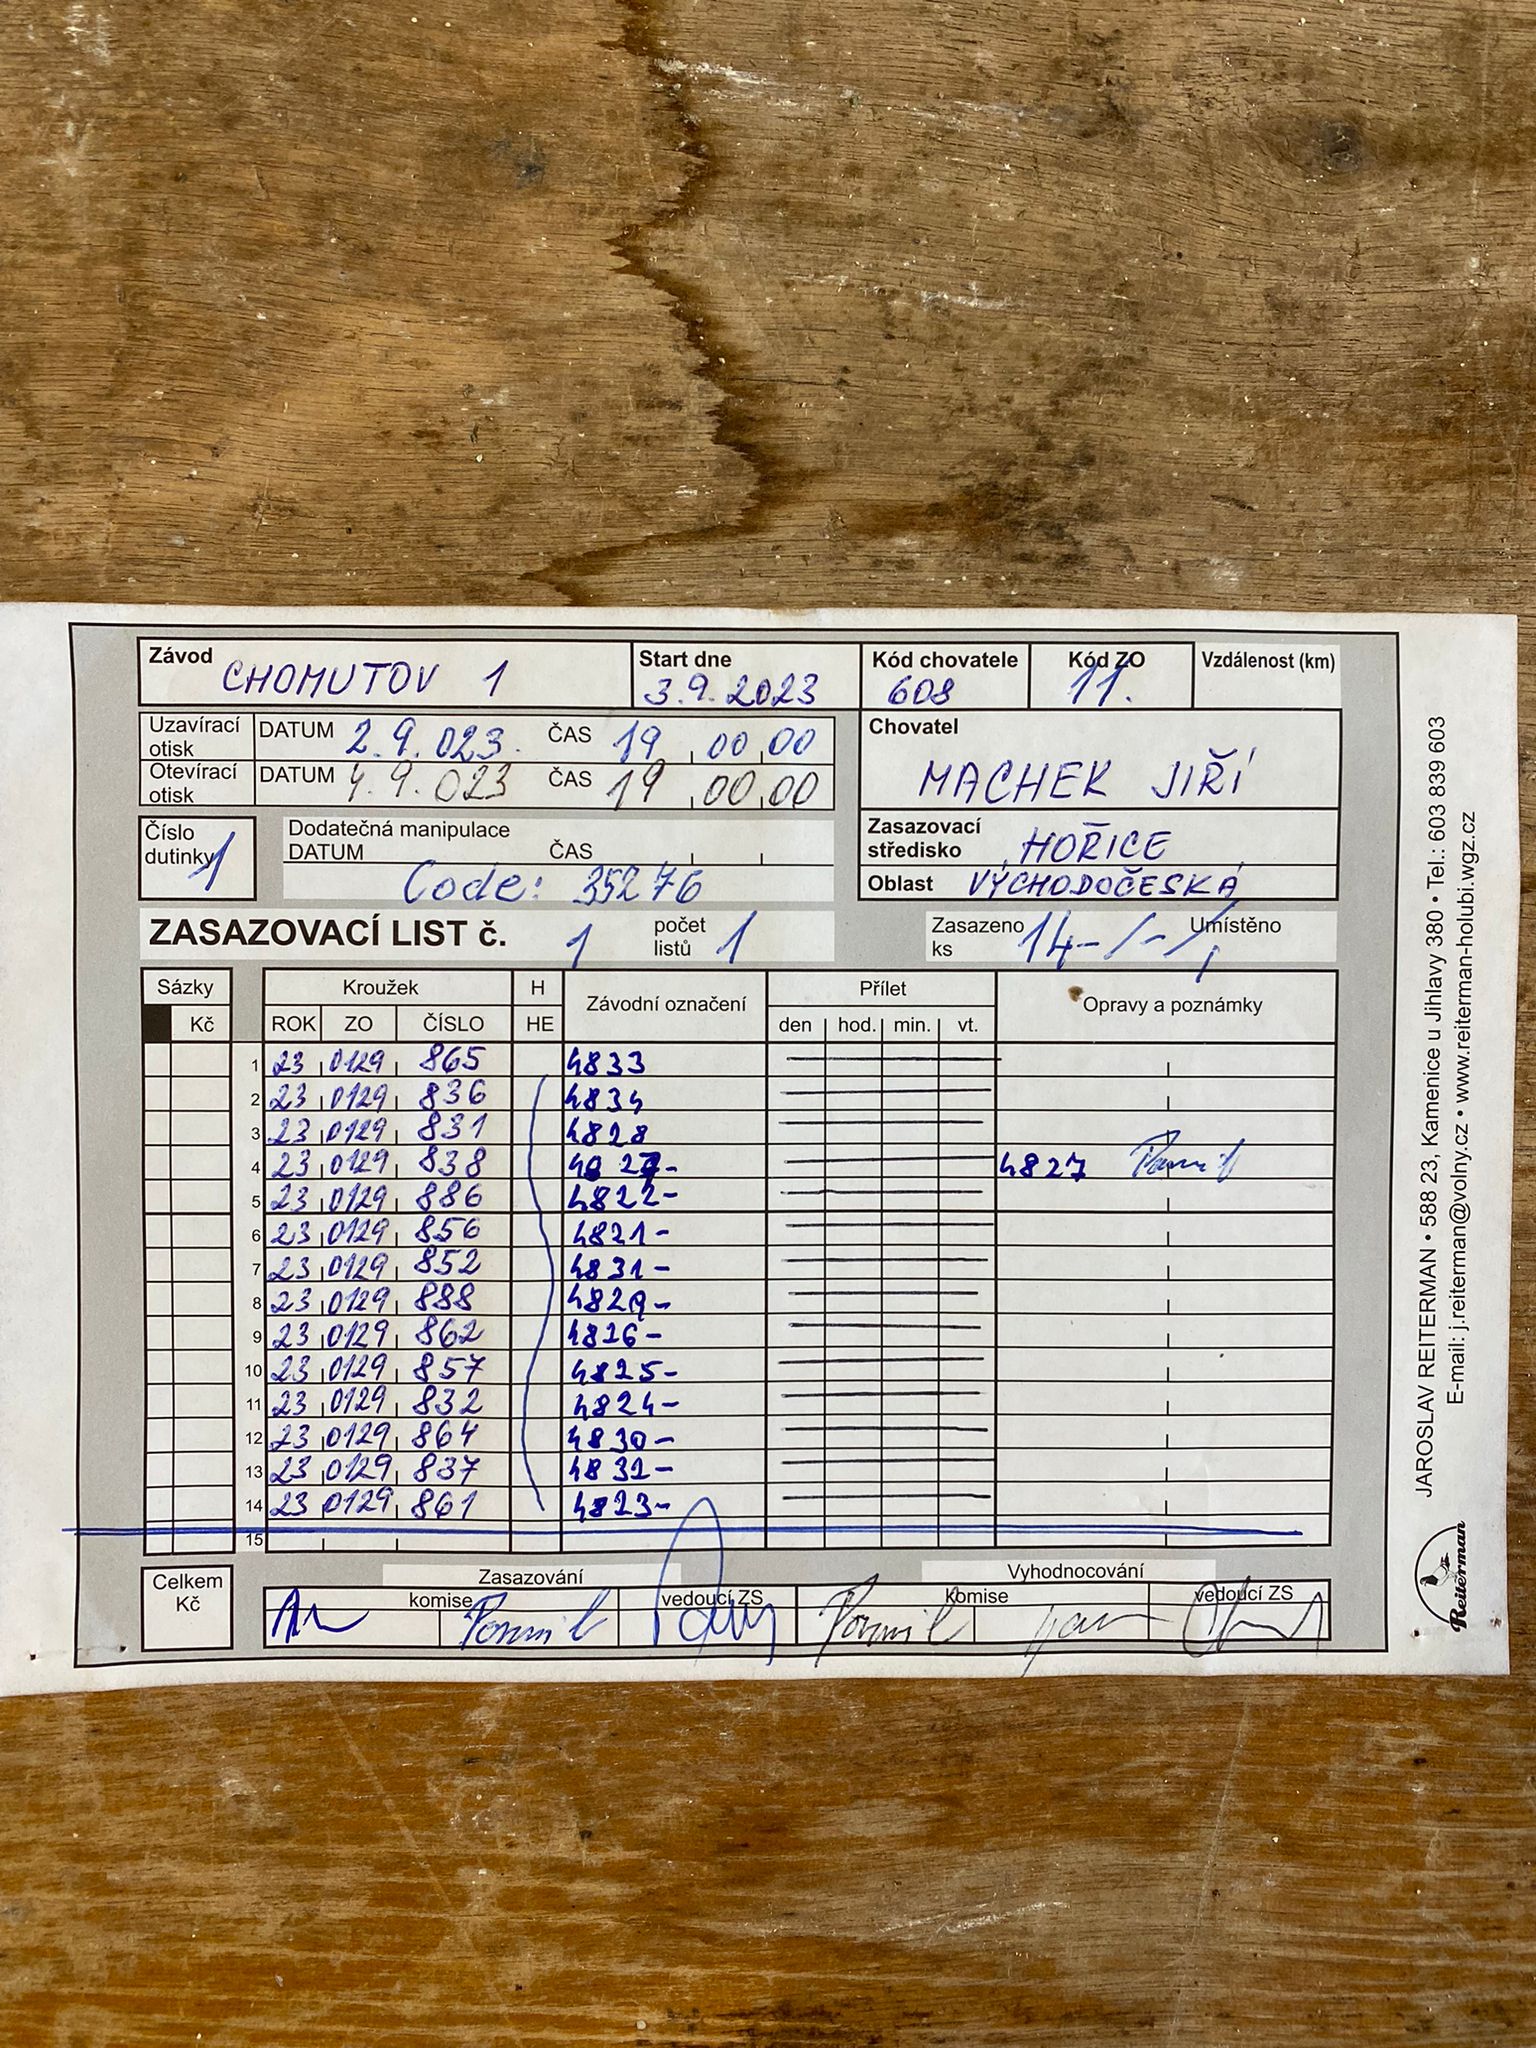 Závod CHOMUTOV 1 Start dne 3.9.2023 Kód chovatele 608 Kód ZO 11. Vzdálenost (km)
Uzavírací otisk DATUM 2.9.023. ČAS 19 00 00
Otevírací otisk DATUM 4.9.023 ČAS 19 00 00
Chovatel
MACHEK JIŘÍ
Číslo dutinky 1
Dodatečná manipulace
DATUM ČAS
Code: 35276
Zasazovací středisko HOŘICE
Oblast VÝCHODOČESKÁ
ZASAZOVACÍ LIST č. 1 počet listů 1 Zasazeno ks 14-/-/, Umístěno
Sázky Kroužek H Závodní označení Přílet Opravy a poznámky
Kč ROK ZO ČÍSLO HE den hod. min. vt.
1 23 0129 865 4833
2 23 0129 836 4834
3 23 0129 831 4828
4 23 0129 838 4827
5 23 0129 886 4822-
6 23 0129 856 4821-
7 23 0129 852 4831-
8 23 0129 888 4829-
9 23 0129 862 4826-
10 23 0129 857 4825-
11 23 0129 832 4824-
12 23 0129 864 4830-
13 23 0129 837 4832-
14 23 0129 861 4823-
15
Celkem Kč
Zasazování Vyhodnocování
komise vedoucí ZS komise vedoucí ZS
JAROSLAV REITERMAN • 588 23, Kamenice u Jihlavy 380 • Tel.: 603 839 603
E-mail: j.reiterman@volny.cz • www.reiterman-holubi.wgz.cz
Reiterman